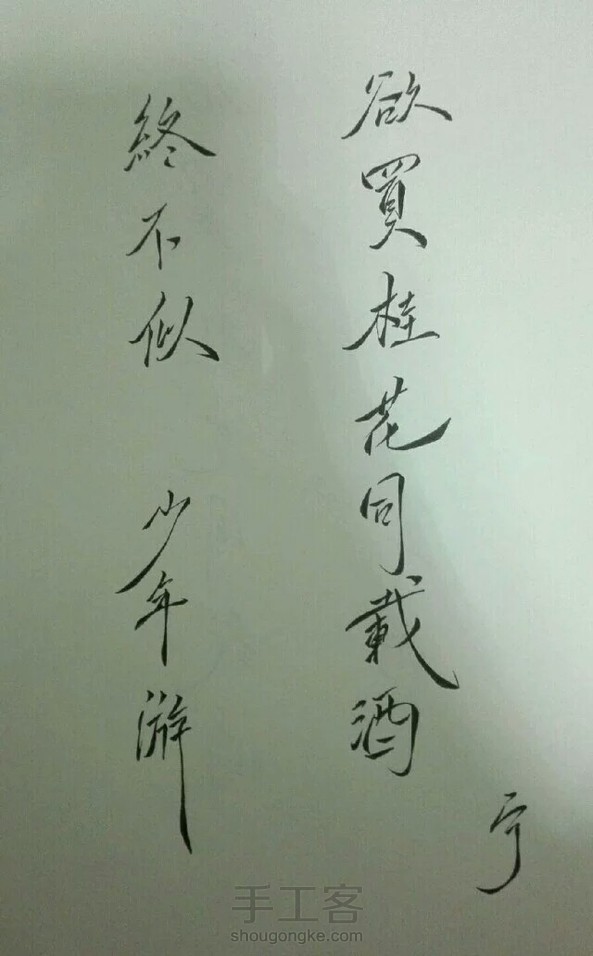 欲買桂花同載酒
終不似 少年游
手工客
shougongke.com